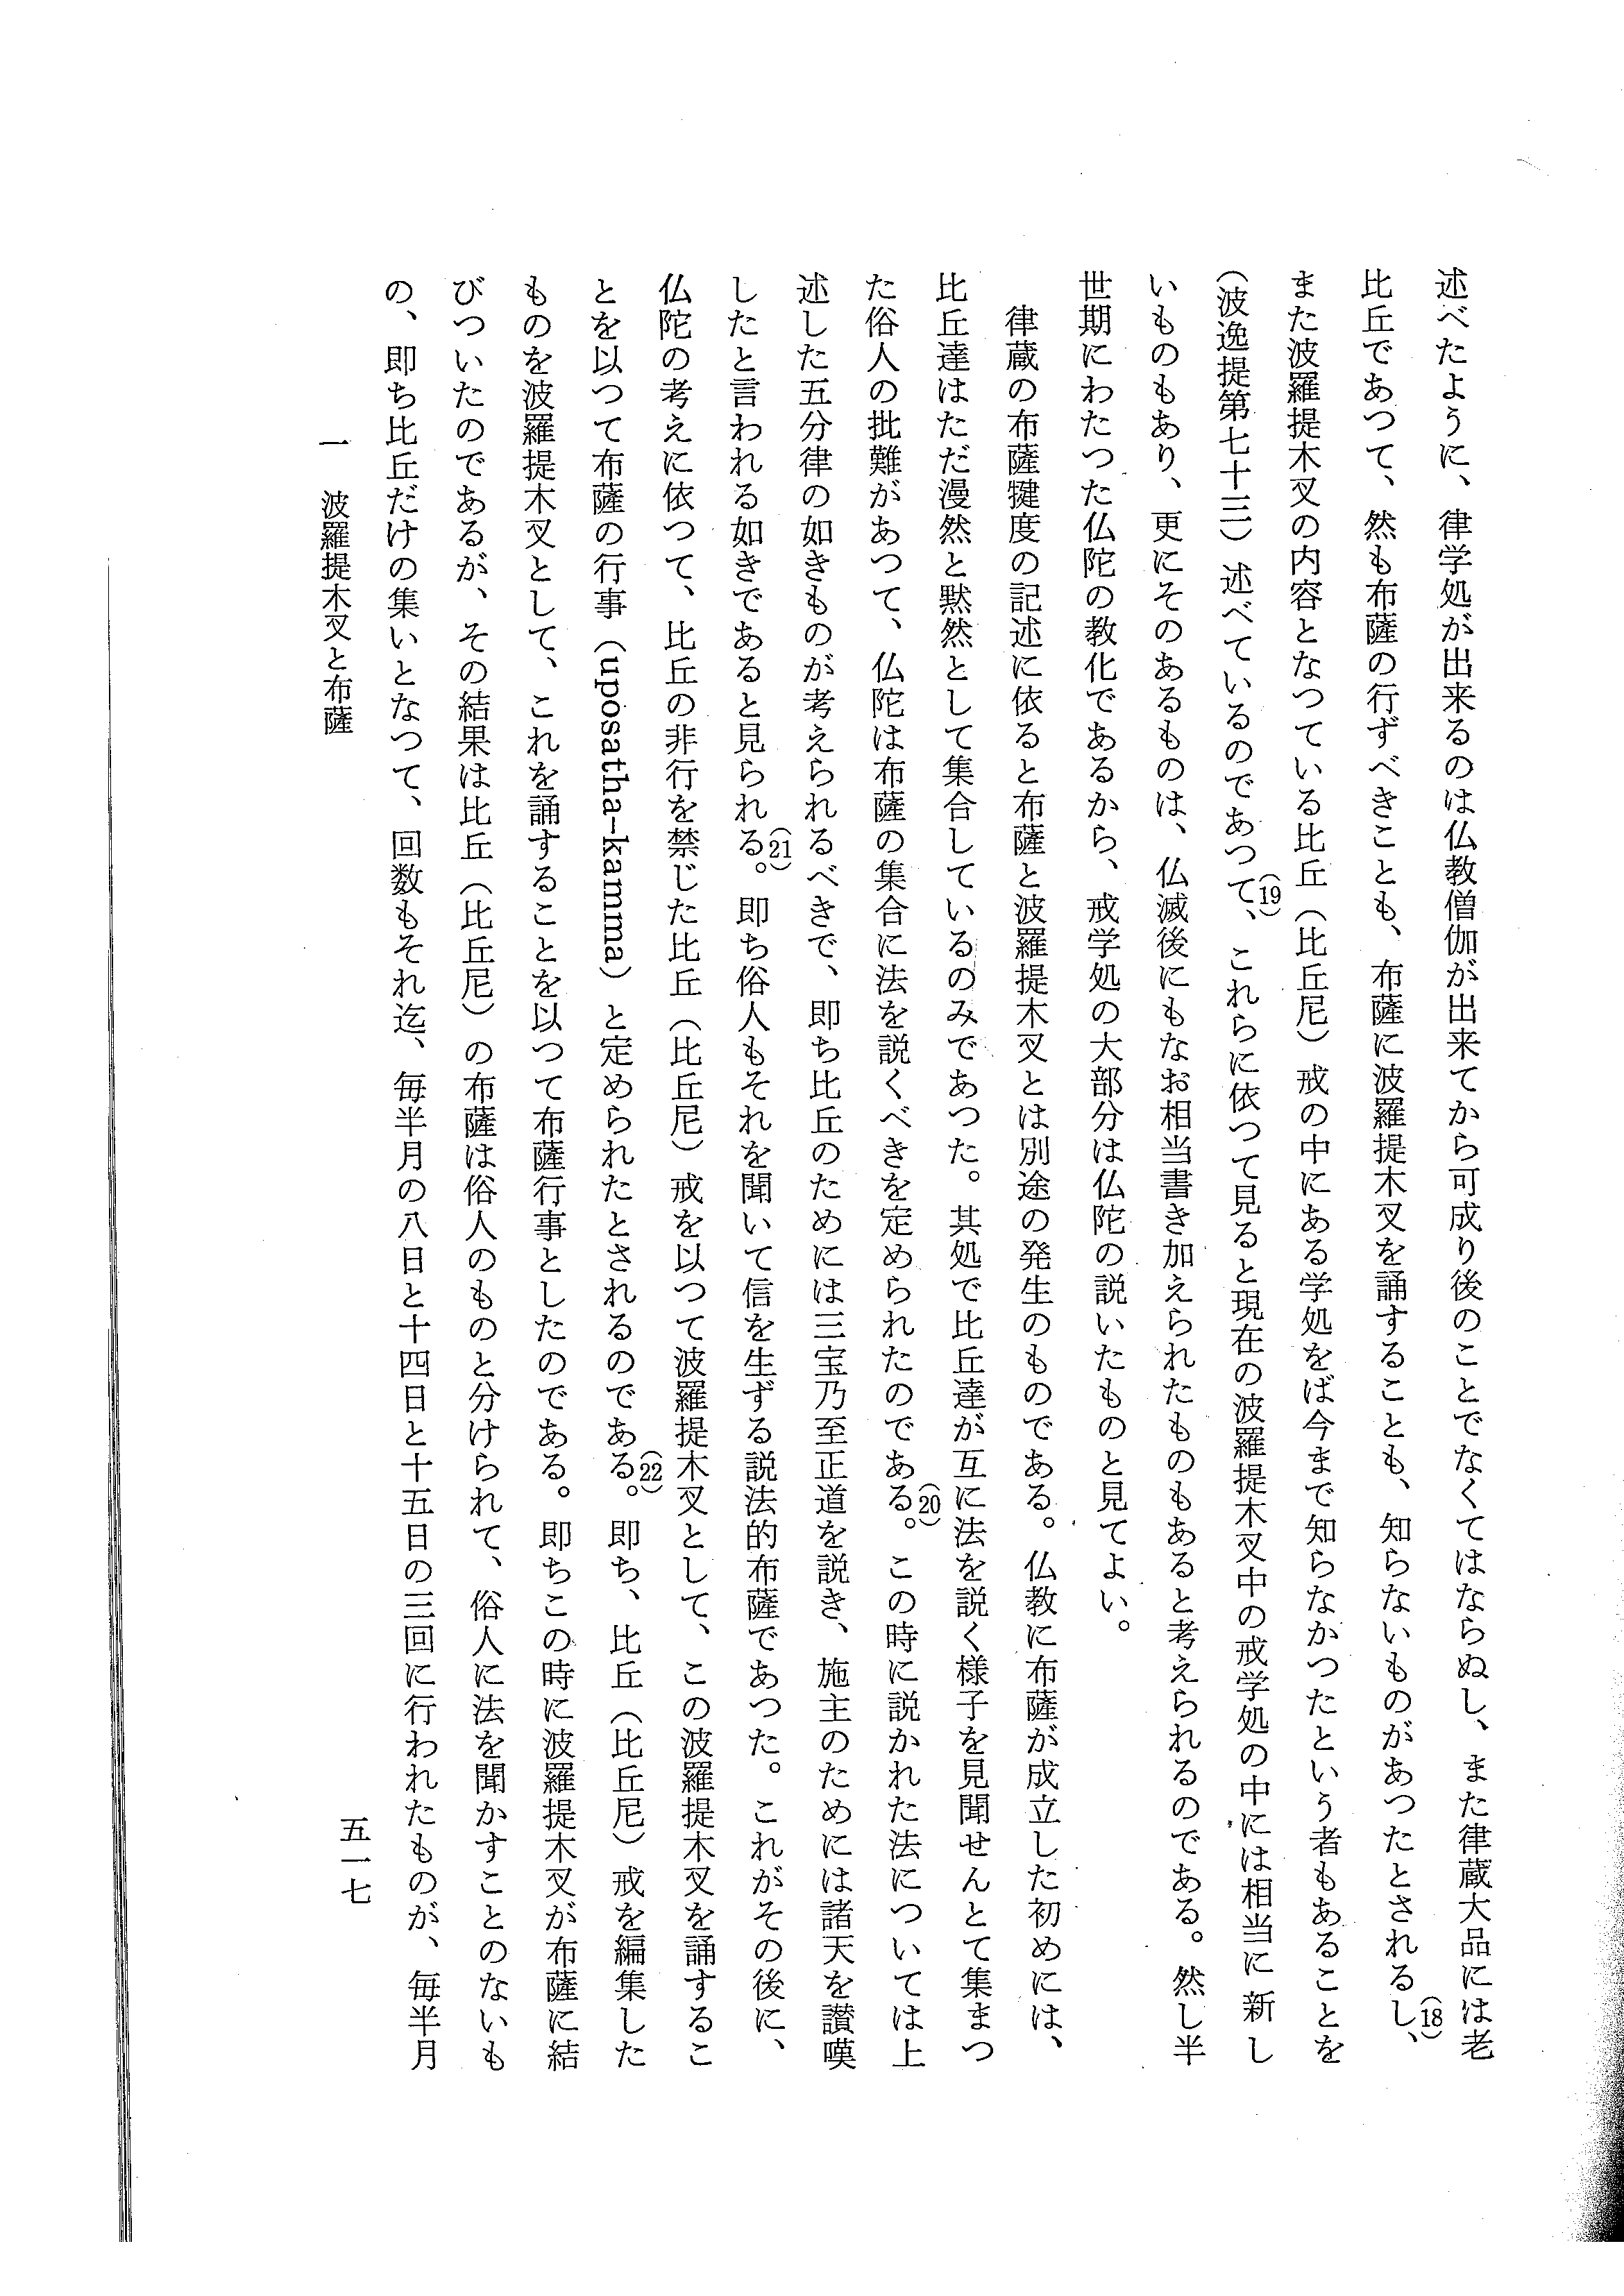 述べたように、律学処が出来るのは仏教僧伽が出来てから可成り後のことでなくてはならぬし、また律蔵大品には老
比丘であつて、然も布薩の行ずべきことも、布薩に波羅提木叉を誦することも、知らないものがあつたとされるし、(18)
また波羅提木叉の内容となつている比丘（比丘尼）戒の中にある学処をば今まで知らなかつたという者もあることを
（波逸提第七十三）述べているのであつて、(19)これらに依つて見ると現在の波羅提木叉中の戒学処の中には相当に新し
いものもあり、更にそのあるものは、仏滅後にもなお相当書き加えられたものもあると考えられるのである。然し半
世期にわたつた仏陀の教化であるから、戒学処の大部分は仏陀の説いたものと見てよい。
律蔵の布薩犍度の記述に依ると布薩と波羅提木叉とは別途の発生のものである。仏教に布薩が成立した初めには、
比丘達はただ漫然と黙然として集合しているのみであつた。其処で比丘達が互に法を説く様子を見聞せんとて集まつ
た俗人の批難があつて、仏陀は布薩の集合に法を説くべきを定められたのである。(20)この時に説かれた法については上
述した五分律の如きものが考えられるべきで、即ち比丘のためには三宝乃至正道を説き、施主のためには諸天を讃嘆
したと言われる如きであると見られる。(21)即ち俗人もそれを聞いて信を生ずる説法的布薩であつた。これがその後に、
仏陀の考えに依つて、比丘の非行を禁じた比丘（比丘尼）戒を以つて波羅提木叉として、この波羅提木叉を誦するこ
とを以つて布薩の行事（uposatha-kamma）と定められたとされるのである。(22)即ち、比丘（比丘尼）戒を編集した
ものを波羅提木叉として、これを誦することを以つて布薩行事としたのである。即ちこの時に波羅提木叉が布薩に結
びついたのであるが、その結果は比丘（比丘尼）の布薩は俗人のものと分けられて、俗人に法を聞かすことのないも
の、即ち比丘だけの集いとなつて、回数もそれ迄、毎半月の八日と十四日と十五日の三回に行われたものが、毎半月
一　波羅提木叉と布薩
五一七